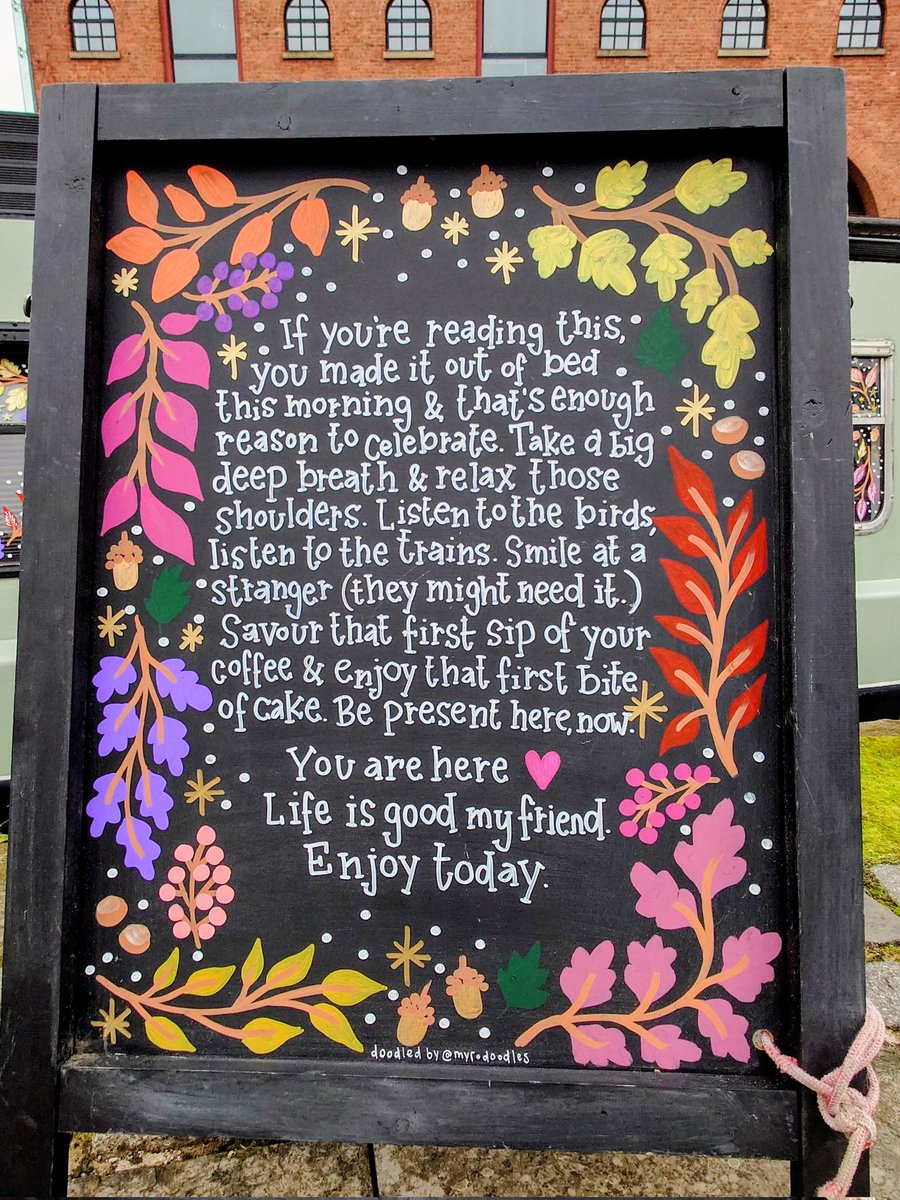 If you're reading this,
you made it out of bed
this morning & that's enough
reason to celebrate. Take a big
deep breath & relax those
shoulders. Listen to the birds,
listen to the trains. Smile at a
stranger (they might need it.)
Savour that first sip of your
coffee & enjoy that first bite
of cake. Be present here, now.
You are here
Life is good my friend.
Enjoy today.
doodled by @myrodoodles